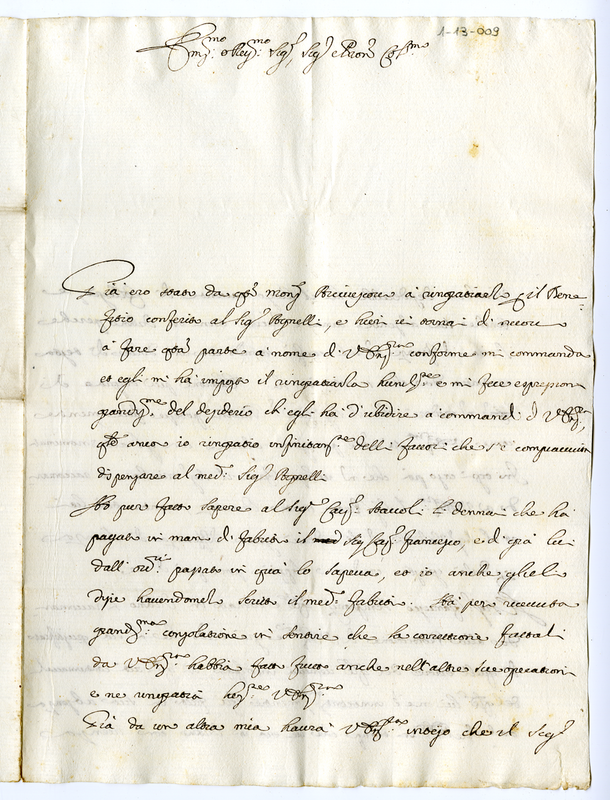 1-13-009
Em.mo e Rev.mo Sig.r, Sig.r e Pron Col.mo
Già ero stato da q.to Mons.r Arcivescovo à ringratiarlo p il Bene-
fitio conferito al Sig.r Pognelli, e hieri vi tornai di nuovo
à fare q.ta parte à nome di V. Em.za conforme mi commanda
et egli mi hà imposto il ringratiarla humilm.te e mi fece espressioni
grandiss.me del desiderio ch'egli hà d'ubidire a commandi di V. Em.za,
anco io ringratio infinitam.te delli favori che s'è compiaciuta
dispensare al med.o Sig.r Pognelli
Hò pur fatto sapere al Sig.r Cap.o Staccoli li denari che hà
pagato in man di Fabritio il Sig.r Cap.o Francesco, e di già lui
dall' ord.o passato in quà lo sapeva, et io anche gliel
dissi havendomelo scritto il med.o Fabritio. Hà poi ricevuto
grandiss.ma consolatione in sentire che la correttione fattali
da V. Em.za habbia fatto frutto anche nell'altre sue operationi
e ne ringratia V. Em.za
Già da un altra mia haurà V. Em.za inteso che il Sig.r